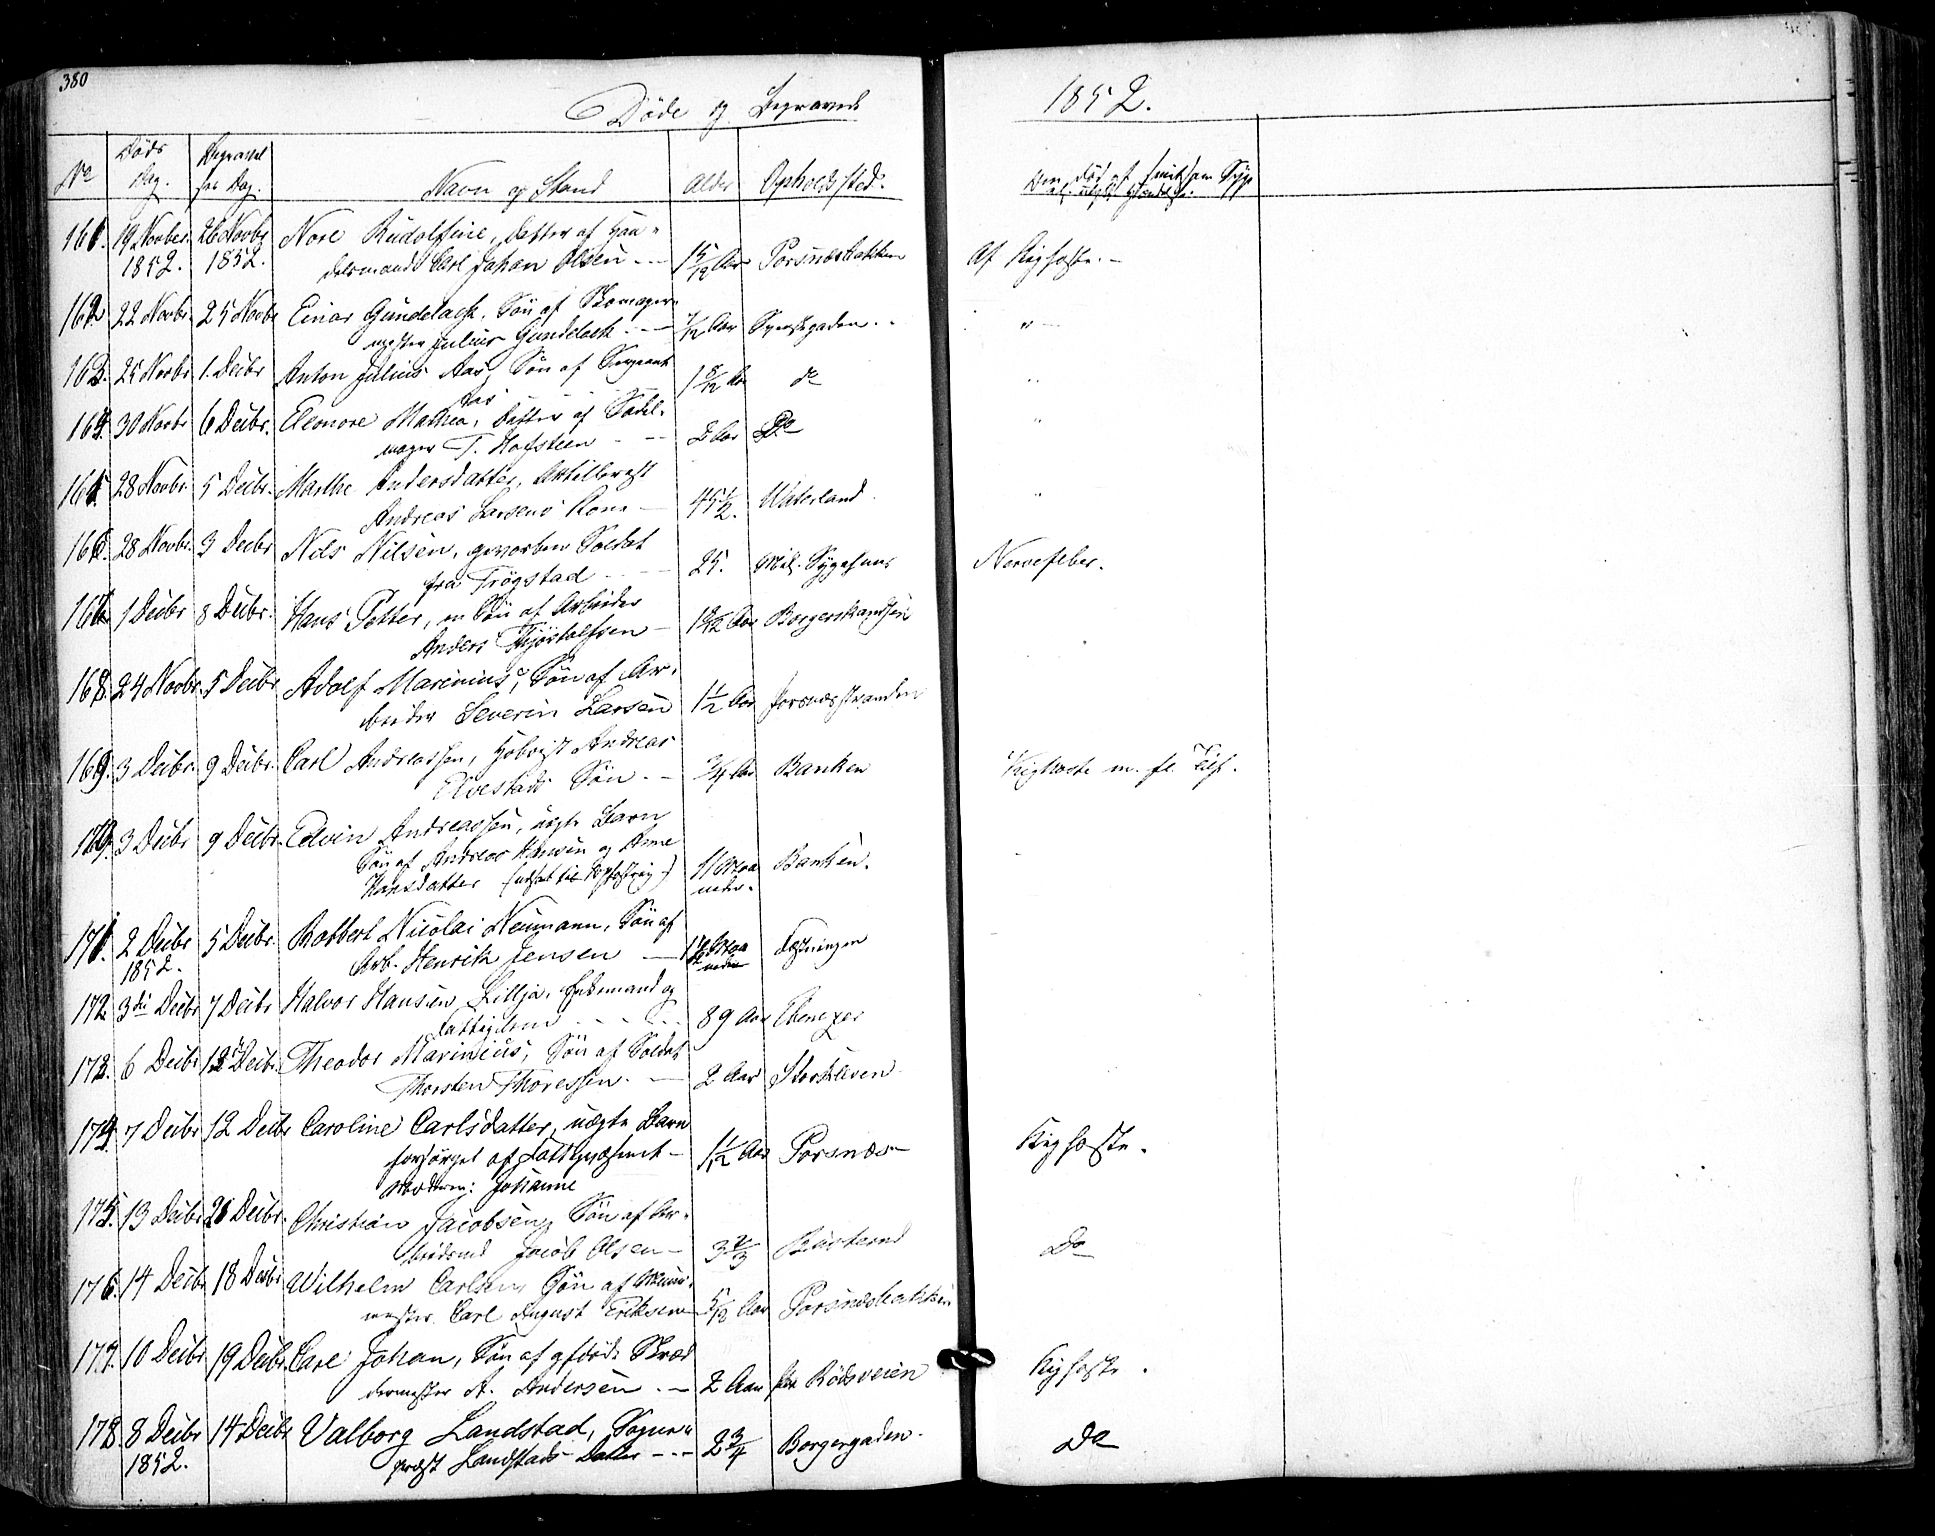 380
Døde og Begravede
1852.
No Døds Dag. Begravelses Dag. Navn og Stand Alder Opholdssted. Om død af smitsom Syge
161. 19 Novbr. 26 Novbr Nore Rudolfine, Datter af Han-
1852. 1852. delsmand Carl Johan Olsen - - - 1 5/12 Aar Porsnæsbakken Af Kighoste. -
162 22 Novbr. 25 Novbr Einar Gundelach. Søn af Skomager-
mester Julius Gundelach - - - 7/12 Aar Synstegaden. "
163. 25 Novbr 1. Decbr Anton Julius Aas, Søn af Sergeant
Aas 1 8/12 Ar do "
164. 30 Novbr 6 Decbr. Eleonore Mathea, Datter af Sadel-
mager T. Hofsteen - - - 2 Aar Do "
165. 28 Novbr. 5 Decbr. Marthe Andersdatter, Artillerist
Andreas Larsens Kone - 45 1/2. Waterland "
166. 28 Novbr. 3 Decbr Nils Nilsen, gevorben Soldat
fra Trøgstad - - 25. Mil. Sygehuus Nervefeber.
167. 1 Decbr 8 Decbr. Hans Petter, en Søn af Arbeider
Anders Thjostolfsen - Aar Borgerskandsen
168. 24 Novbr. 5 Decbr Adolf Marinius, Søn af Ar-
beider Severin Larsen 1 1/2 Aar Porsnæsstranden
169. 3 Decbr. 9 Decbr. Carl Andreassen, Andreas
Søn. - 3/4 Aar Banken Kighoste m. fl. Tilf.
170. 3 Decbr 9 Decbr. Edvin Andreassen, uægte Barn
Søn af Andreas Hansen og Anne
Hansdatter 11 Maa Banken.
neder.
171. 2 Decbr 5 Decbr. Robbert Nicolai Neumann, Søn af
1852. Arb. Henrik Jensen - Fæstningen
172 3die Decbr 7 Decbr Halvor Hansen Lillja, Enkemand og
Fattiglem - - - 89 Aar Ebenezer
173. 6 Decbr 12 Decbr. Theodor Marinius, Søn af Soldat
Thorsten Thoressen. - 2 Aar
174. 7 Decbr 12 Decbr Caroline Carlsdatter, uægte Barn
forsørget af Fattigvæsenet - 1 1/12 Aar Porsnæs - Kighoste.
Moderen: Johanne
175. 13 Decbr 20 Decbr. Christian Jacobsen, Søn af Ar-
beidsmd Jacob Olsen - 3 2/3 Do
176. 14 Decbr 18 Decbr Wilhelm Carlsen, Søn af Muur-
mester Carl August Eriksen - Aar Porsnæsbakken
177. 10 Decbr 19 Decbr. Carl Johan, Søn af afdøde Skræd
dermester A. Andersen. - 2 Aar Rødsveien Kighoste.
178. 8 Decbr 14 Decbr Valborg Landstad, Sogne-
1852. præst Landstads Datter - - - 2 3/4 Borgergaden. Do